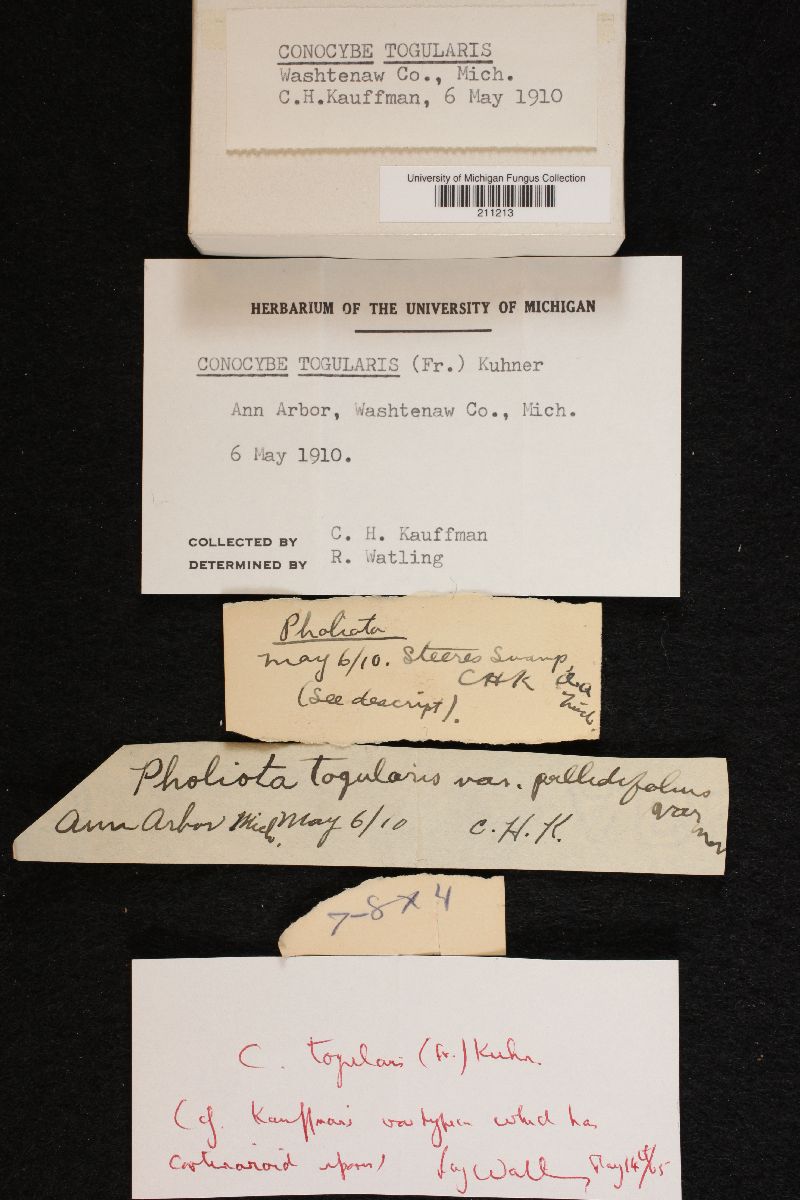 CONOCYBE TOGULARIS
Washtenaw Co., Mich.
C.H.Kauffman, 6 May 1910
University of Michigan Fungus Collection
211213
HERBARIUM OF THE UNIVERSITY OF MICHIGAN
CONOCYBE TOGULARIS (Fr.) Kuhner
Ann Arbor, Washtenaw Co., Mich.
6 May 1910.
COLLECTED BY C. H. Kauffman
DETERMINED BY R. Watling
Pholiota
May 6/10. Steeres Swamp,
CHK
(See descript).
Mich.
Pholiota togularis var. pallidifolius
var nov
Ann Arbor Mich. May 6/10 C.H.K.
7-8 x 4
C. togularis (Fr.) Kuhn.
(cf. Kauffman's var typica which has
cortinarioid spores) Roy Watling May 14th/65